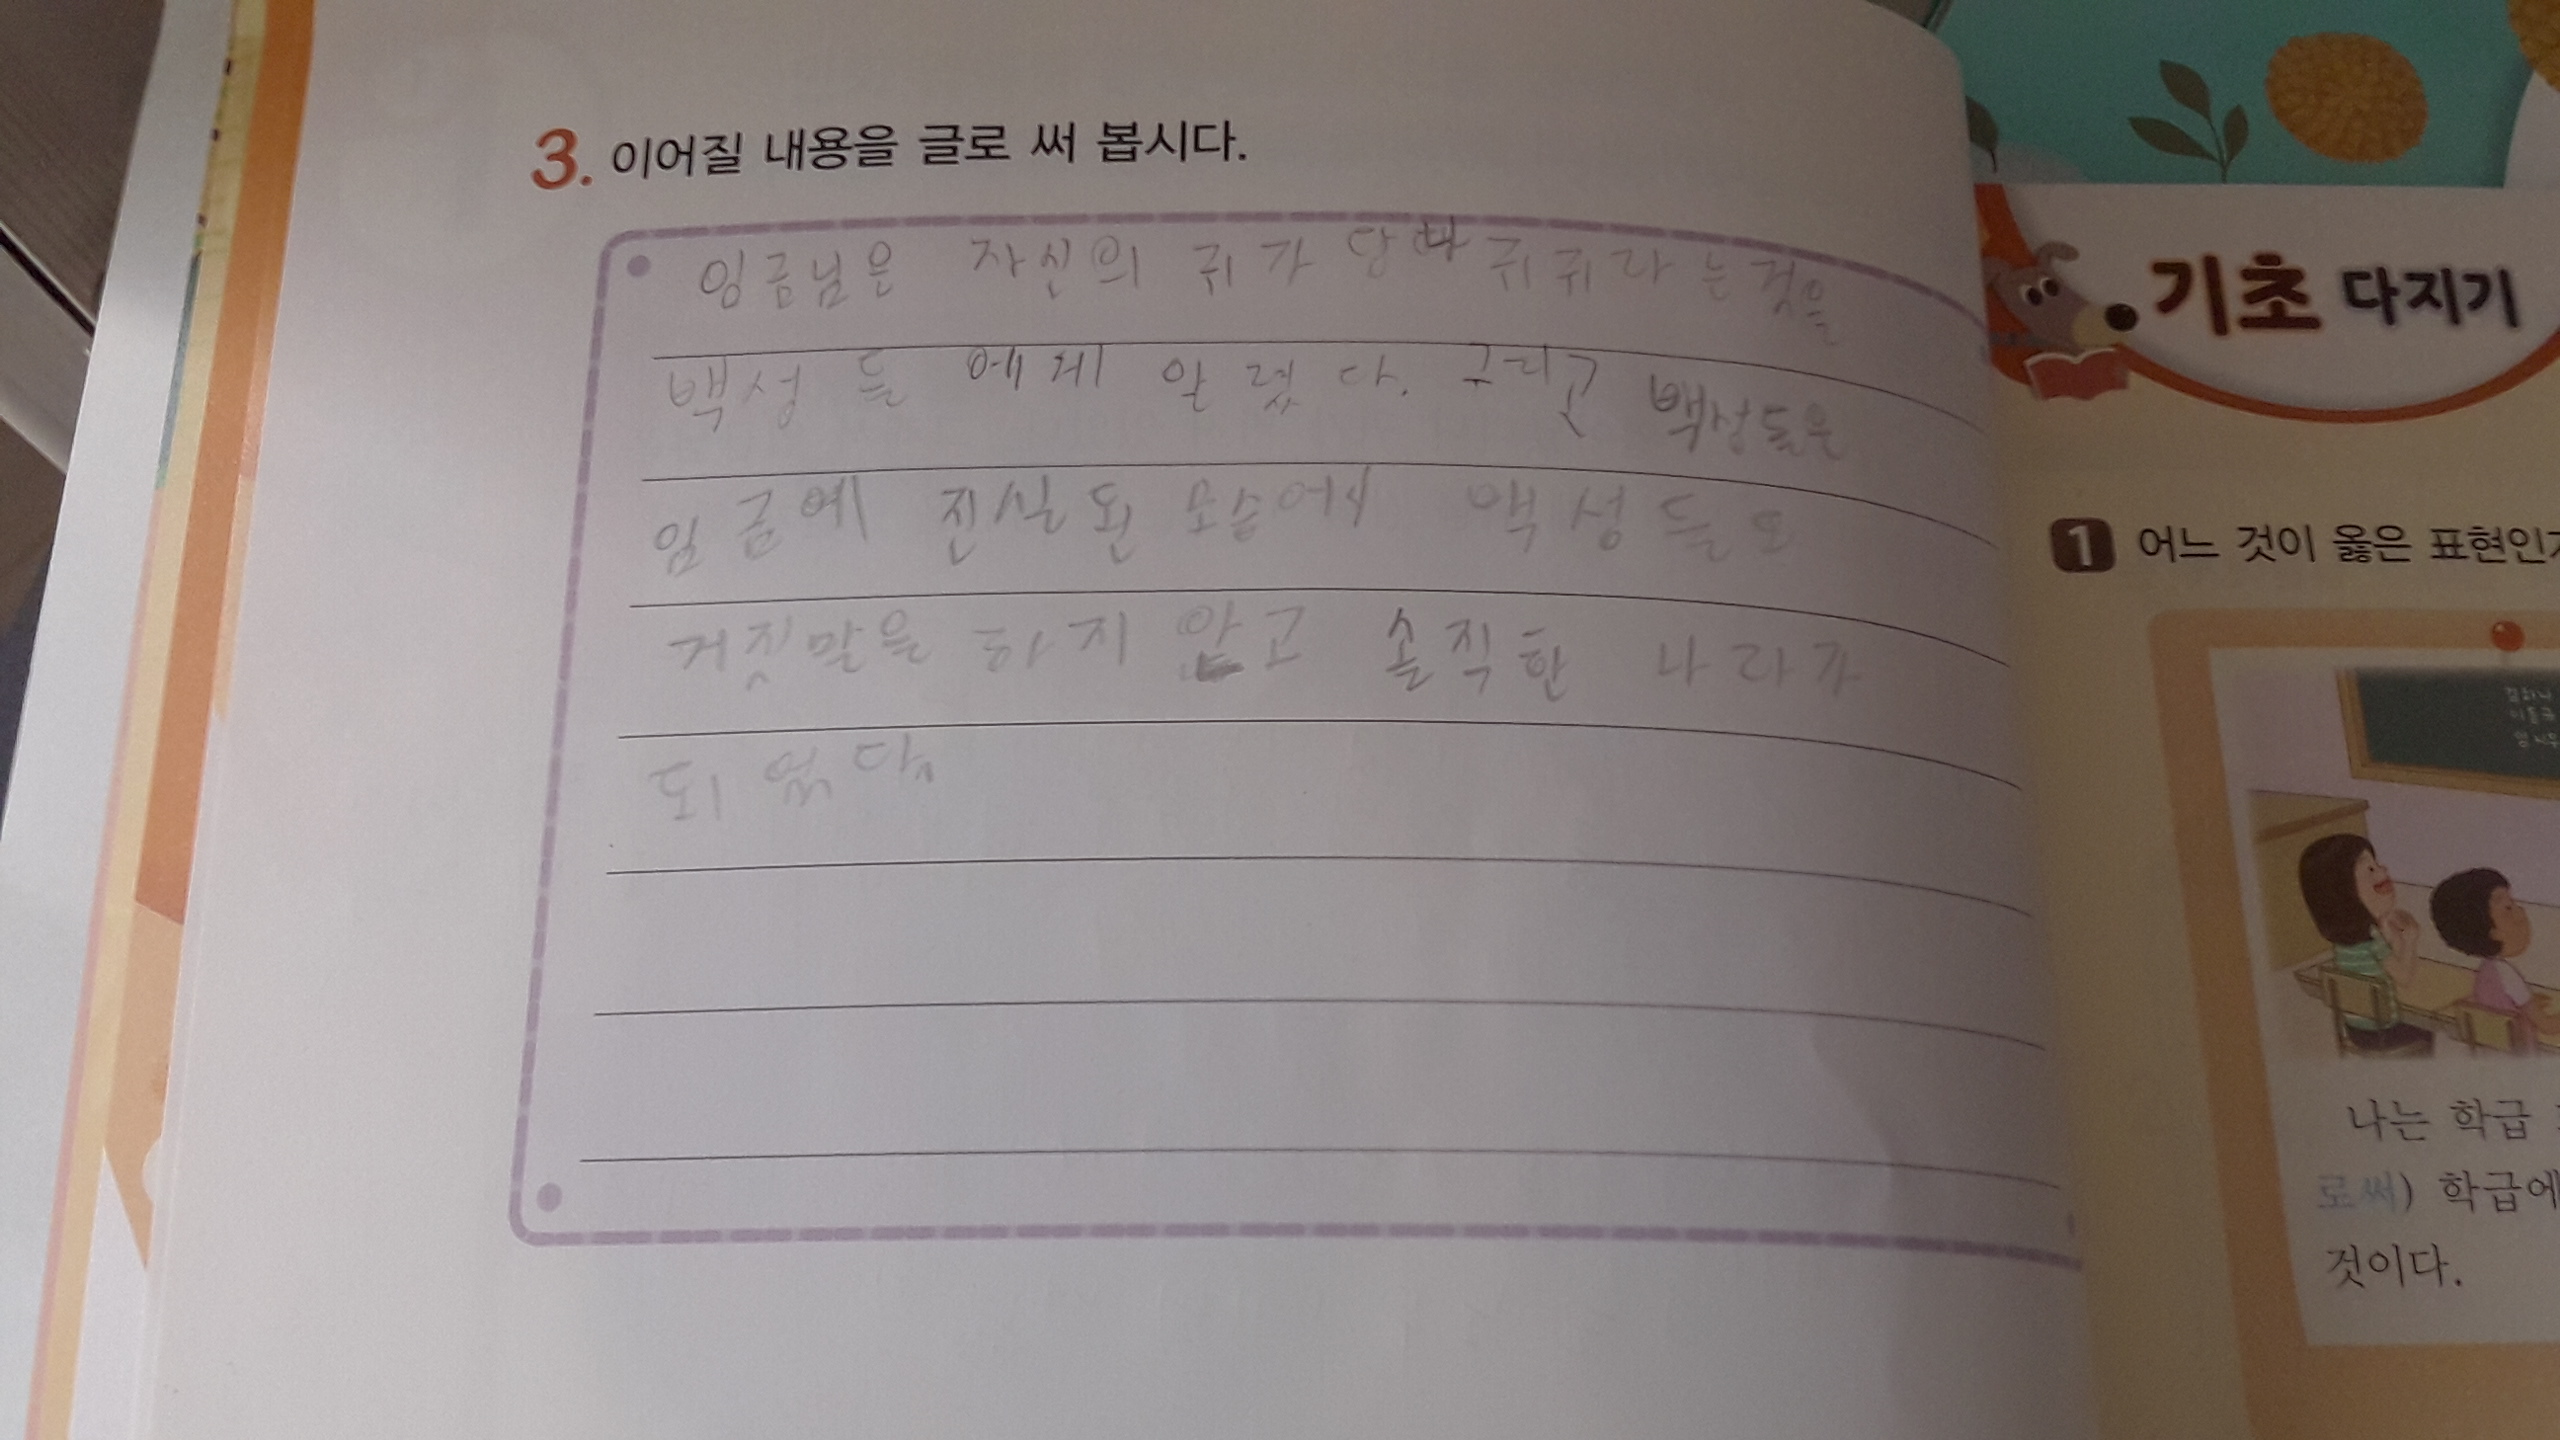 3. 이어질 내용을 글로 써 봅시다.
임금님은 자신의 귀가 당나귀귀라는것을
백성들에게 알렸다. 그리고 백성들은
임금에 진실된 모습에서 백성들도
거짓말을 하지 않고 솔직한 나라가
되었다.
기초 다지기
1 어느 것이 옳은 표현인
나는 학급
로써) 학급에
것이다.